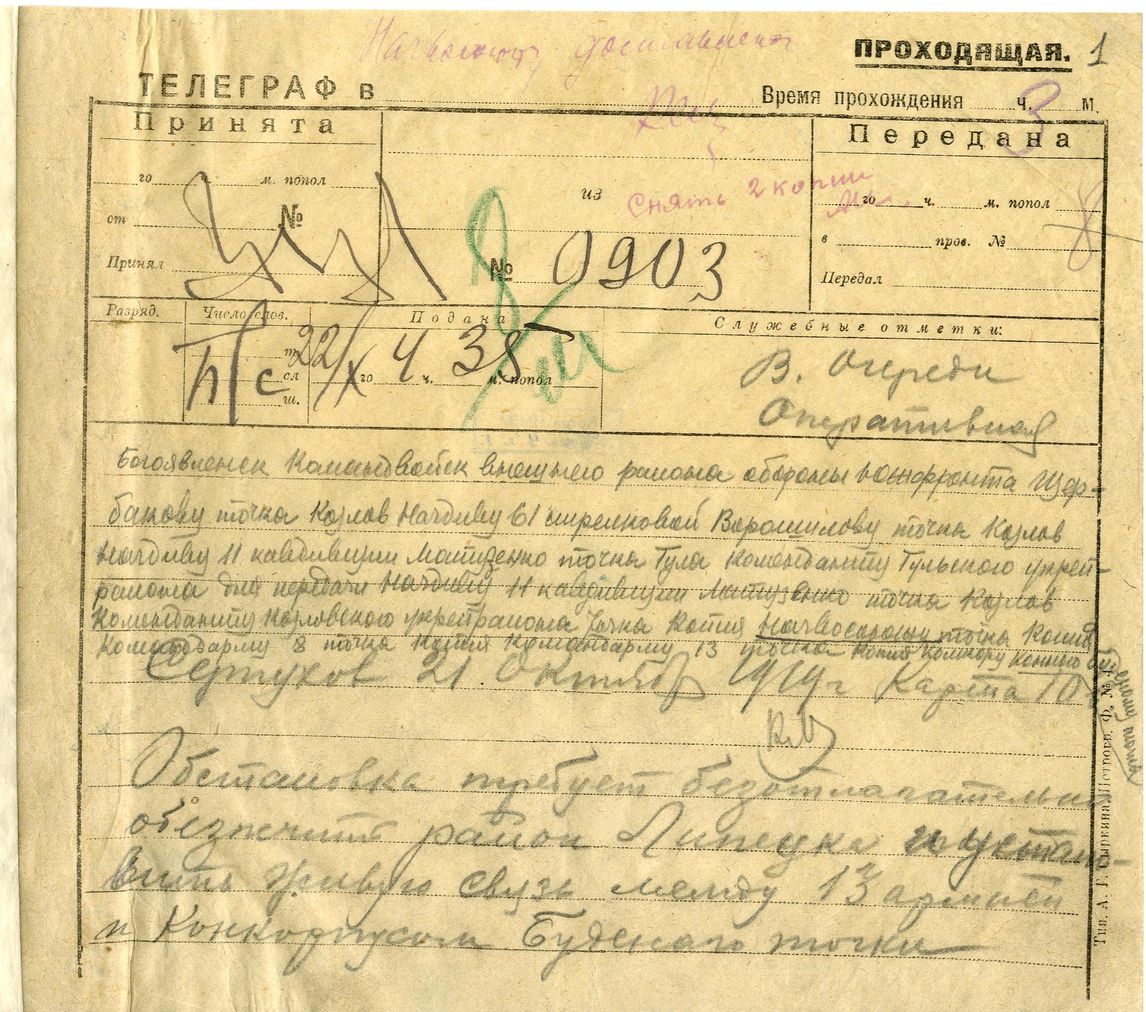 ПРОХОДЯЩАЯ. 1
ТЕЛЕГРАФ в
Время прохождения ч. м.
Принята
Передана
го м. попол
из
Снять 2 копии
го ч. м. попол
от №
в пров. №
Принял
№ 0903
Передал
Разряд. Число слов. Подана
Служебные отметки:
22/X го 4 ч. 35 м. попол
сл
ш.
В. Очереди
Оперативная
Богоявленск Командвойск внешнего района обороны Южфронта Щер-
бакову точка Козлов Начдиву 61 стрелковой Ворошилову точка Козлов
Начдиву 11 кавдивизии Матузенко точка Тула Коменданту Тульского укреп-
района для передачи Начдиву 11 кавдивизии Матузенко точка Козлов
Коменданту Козловского укрепрайона точка Копия точка Копия
Командарму 8 точка Копия Командарму 13 точка Копия Комкору Конного
Серпухов 21 Октября 1919 г Карта 10
Обстановка требует безотлагательно
обезпечить район Липецка и устано-
вить живую связь между 13 армией
и Конкорпусом Буденого точка
Тип. А. Г. Сыркина